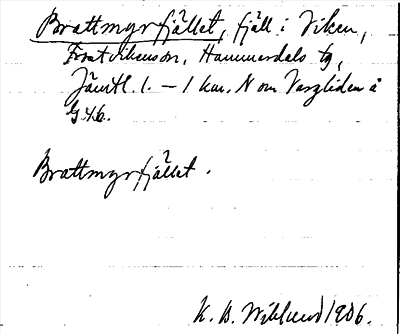 Brattmyrfjället, fjäll i Viken,
Frostvikens sn, Hammerdals tg,
Jämtl. l. – 1 km. N om Vargliden å
G.4b.
Brattmyrfjället.
K. B. Wiklund 1906.